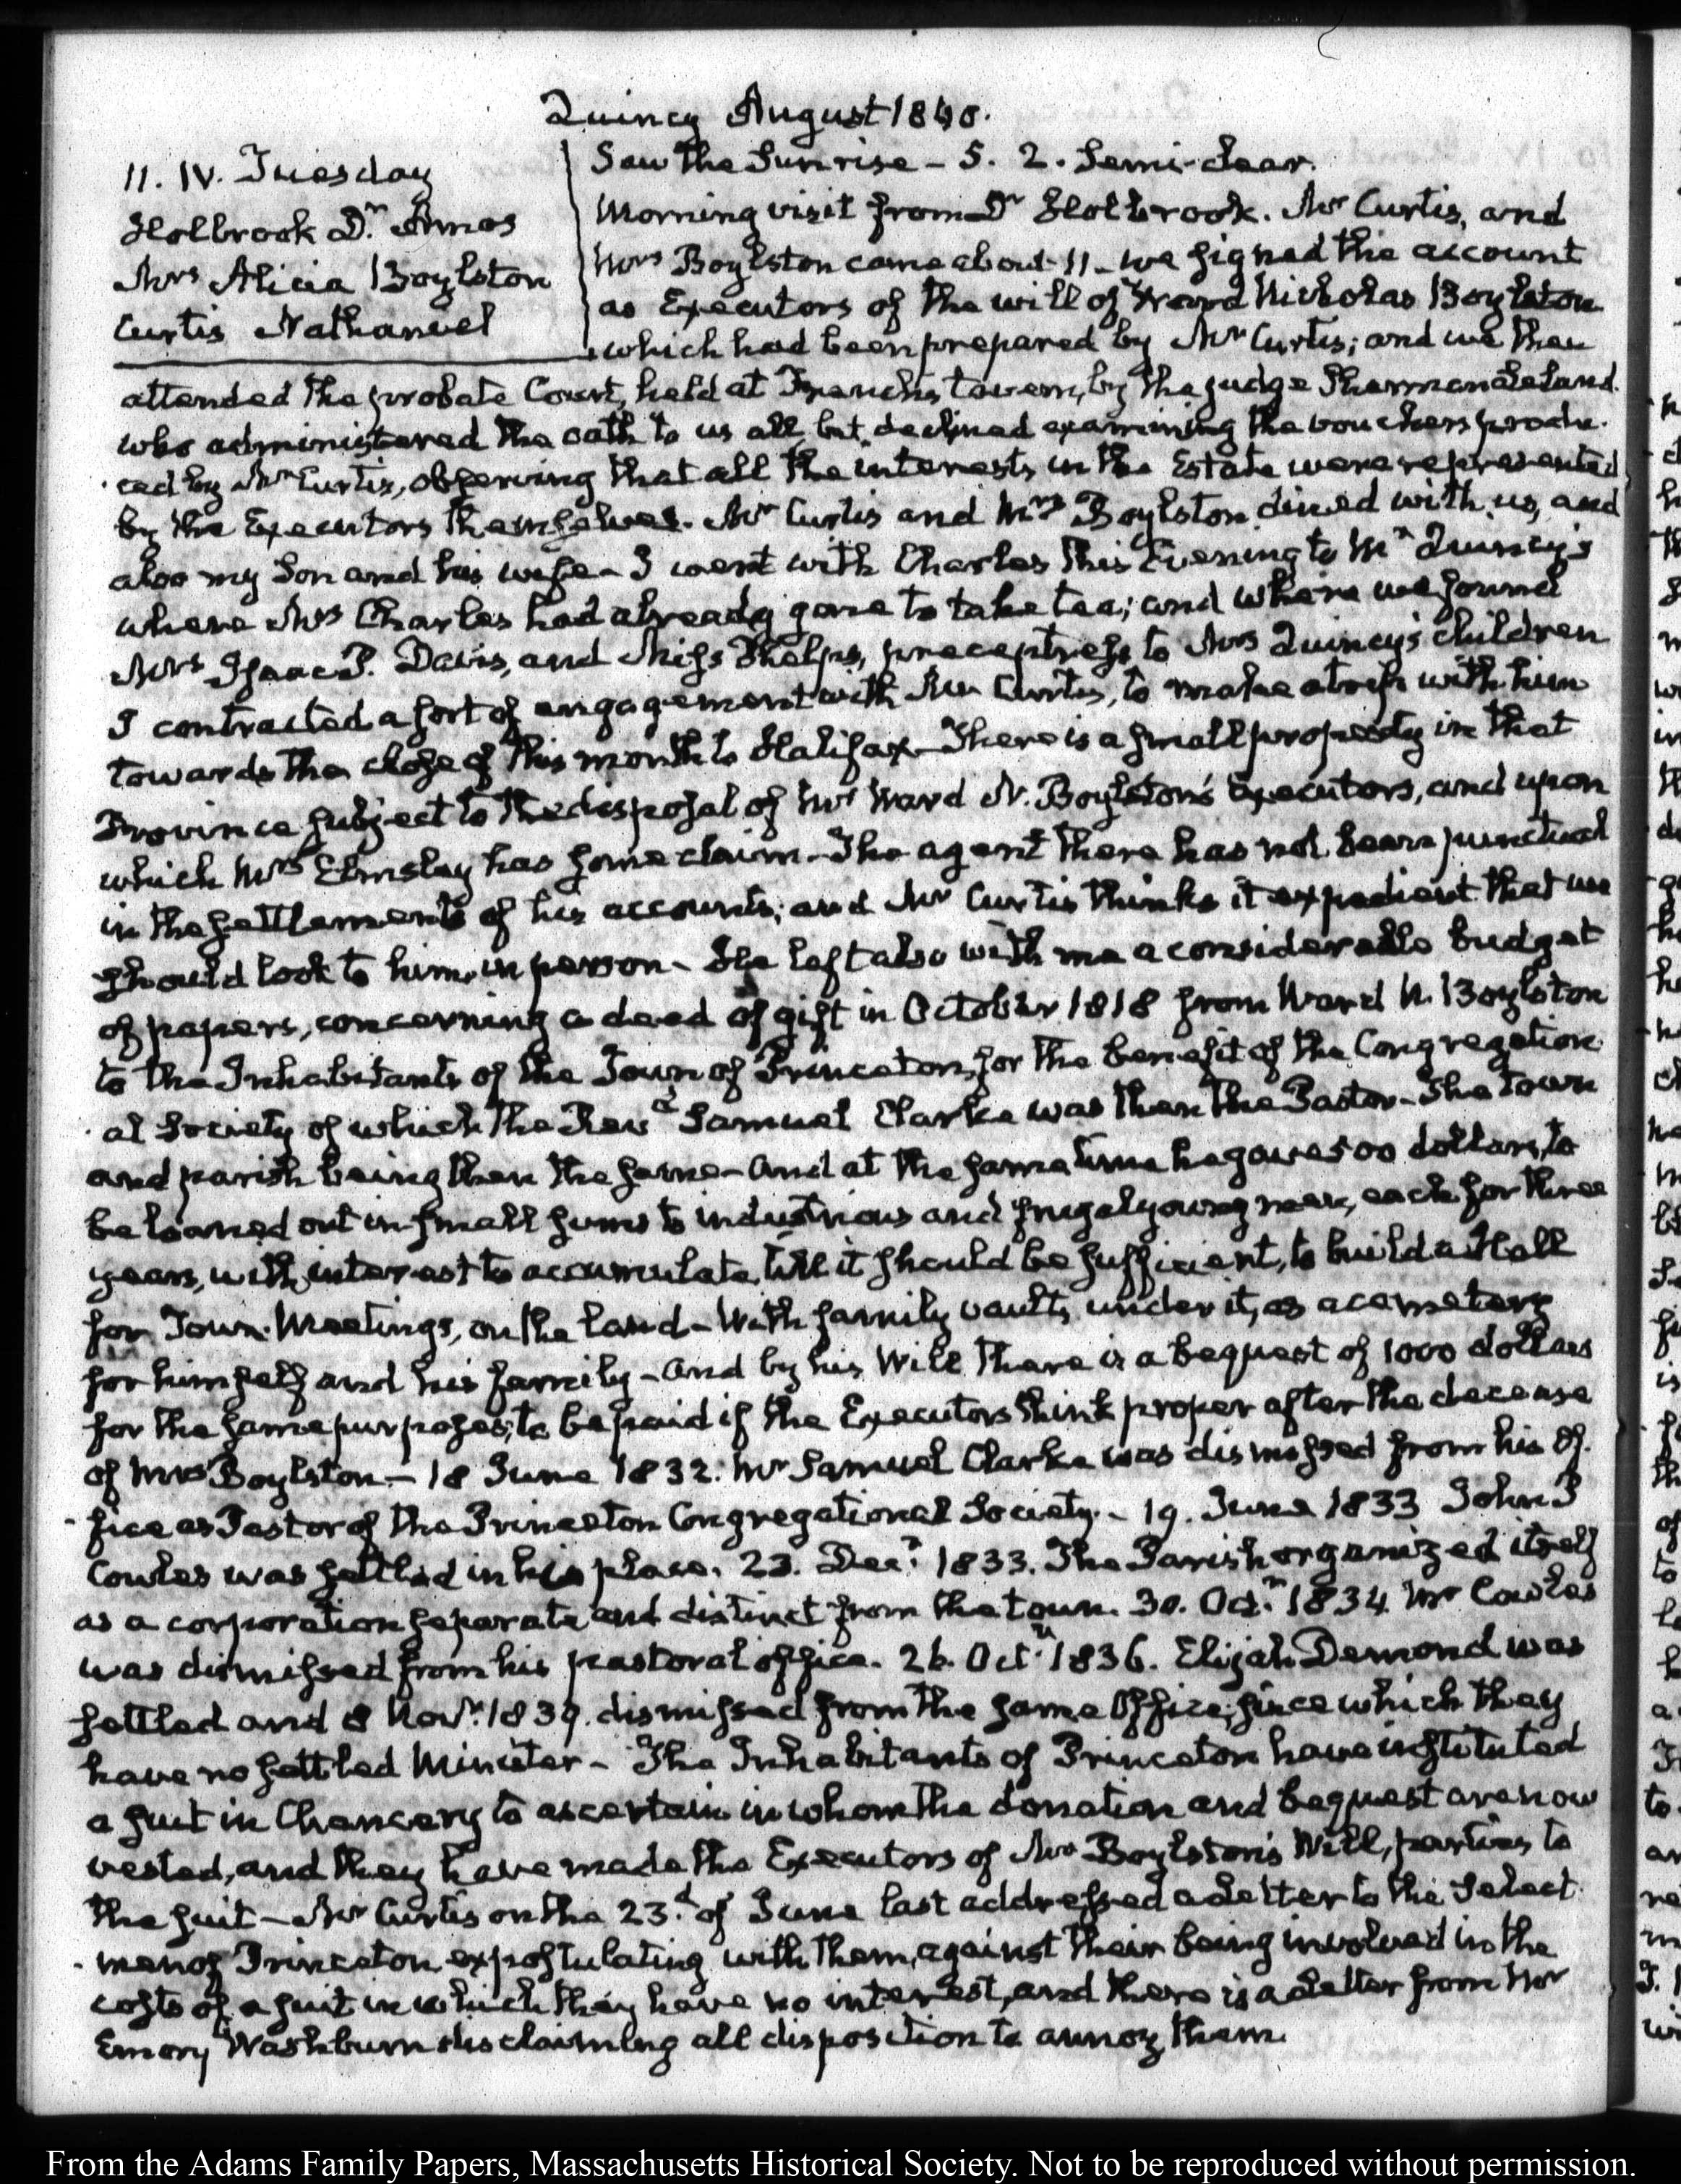 Quincy August 1840.
11. IV. Tuesday
Holbrook Dr. Amos
Mrs Alicia Boylston
Curtis Nathaniel
Saw the Sun rise - 5. 2. Semi-clear.
Morning visit from Dr Holbrook. Mr Curtis, and
Mrs Boylston came about 11 - we signed the account
as Executors of the will of Ward Nicholas Boylston
which had been prepared by Mr Curtis; and we then
attended the probate Court, held at French's tavern, by the judge Sherman Leland.
who administered the oath to us all, but declined examining the vouchers produ-
ced by Mr Curtis, observing that all the interests in the Estate were represented
by the Executors themselves. Mr Curtis and Mrs Boylston dined with us, and
also my Son and his wife - I went with Charles this Evening to Mr Quincy's
where Mrs Charles had already gone to take tea; and where we found
Mrs Isaac P. Davis, and Miss Phelps, preceptress to Mrs Quincy's children
I contracted a sort of engagement with Mr Curtis, to make a trip with him
towards the close of this month to Halifax - There is a small property in that
Province subject to the disposal of Mr Ward N. Boylston's Executors, and upon
which Mrs Elmsley has some claim - The agent there has not been punctual
in the settlements of his accounts; and Mr Curtis thinks it expedient that we
should look to him, in person - He left also with me a considerable budget
of papers, concerning a deed of gift in October 1818 from Ward N. Boylston
to the Inhabitants of the Town of Princeton, for the benefit of the Congregation-
al Society of which the Revd Samuel Clarke was then the Pastor - The Town
and parish being then the same - And at the same time he gave 500 dollars, to
be loaned out in small sums to industrious and frugal young men, each for three
years, with interest to accumulate, till it should be sufficient, to build a Hall
for Town-Meetings, on the land - With family vaults under it, as a cemetery
for himself and his family - And by his Will there is a bequest of 1000 dollars
for the same purposes; to be paid if the Executors think proper after the decease
of Mrs Boylston - 18 June 1832. Mr Samuel Clarke was dismissed from his Of-
fice as Pastor of the Princeton Congregational Society. - 19. June 1833 John P
Cowles was settled in his place. 23. Decr. 1833. The Parish organized itself
as a corporation separate and distinct from the town. 30. Octr. 1834. Mr Cowles
was dismissed from his pastoral office. 26. Octr. 1836. Elijah Demond was
settled and 8 Novr. 1839. dismissed from the same Office; since which they
have no settled Minister - The Inhabitants of Princeton have instituted
a suit in Chancery to ascertain in whom the donation and bequest are now
vested, and they have made the Executors of Mr Boylston's Will, parties to
the suit - Mr Curtis on the 23.d of June last addressed a Letter to the Select-
men of Princeton expostulating with them, against their being involved in the
costs of a suit in which they have no interest, and there is a Letter from Mr
Emory Washburn disclaiming all disposition to annoy them.
From the Adams Family Papers, Massachusetts Historical Society. Not to be reproduced without permission.